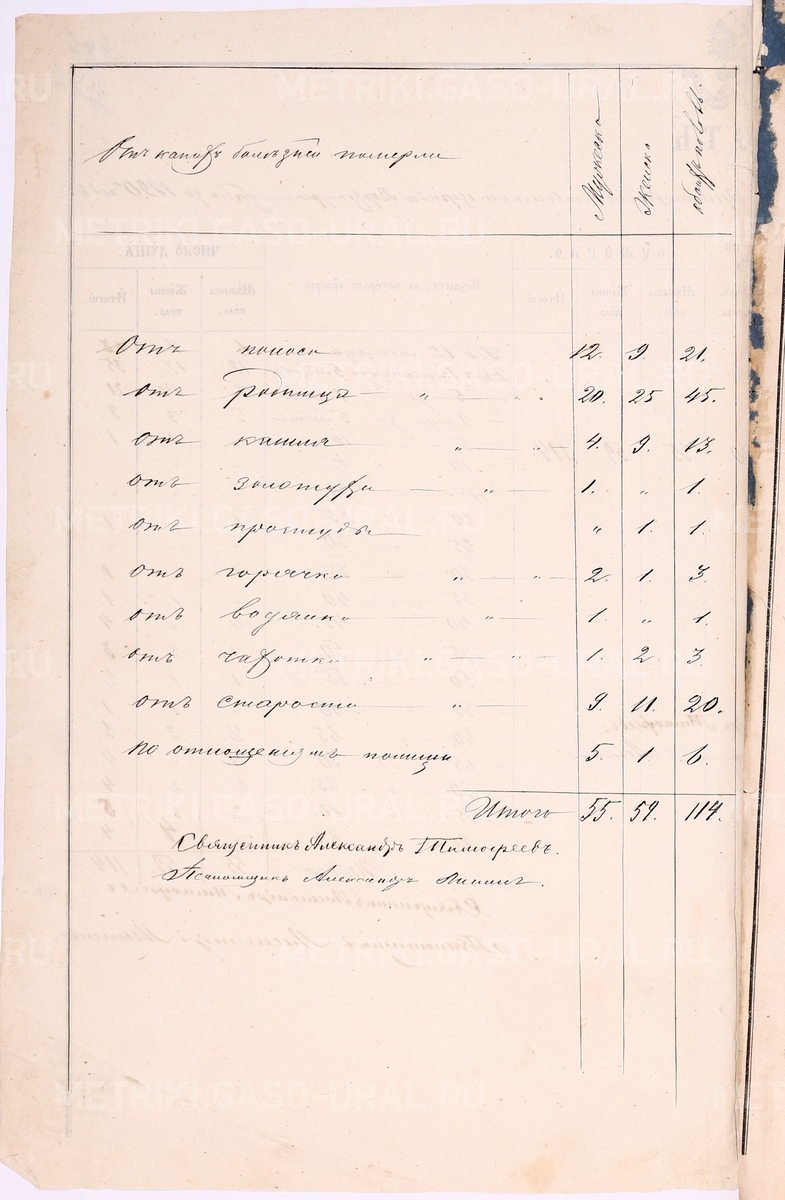 Отъ какихъ болѣзней померли
Мужеска
Женска
обоего пола
Отъ поноса 12. 9. 21.
отъ родимца — " — " . 20. 25 45.
отъ кашля " — " — 4. 9. 13.
отъ золотухи — " — 1. " 1.
отъ простуды " 1. 1.
отъ горячки " — " — 2. 1. 3.
отъ водянки " — 1. " 1.
отъ чахотки — " — " — 1. 2. 3.
отъ старости " — 9. 11. 20.
по отношеніямъ полиціи 5. 1 6.
Итого 55. 59. 114.
Священникъ Александръ Тимофеевъ.
Псаломщикъ Александръ
METRIKI.GASO-URAL.RU